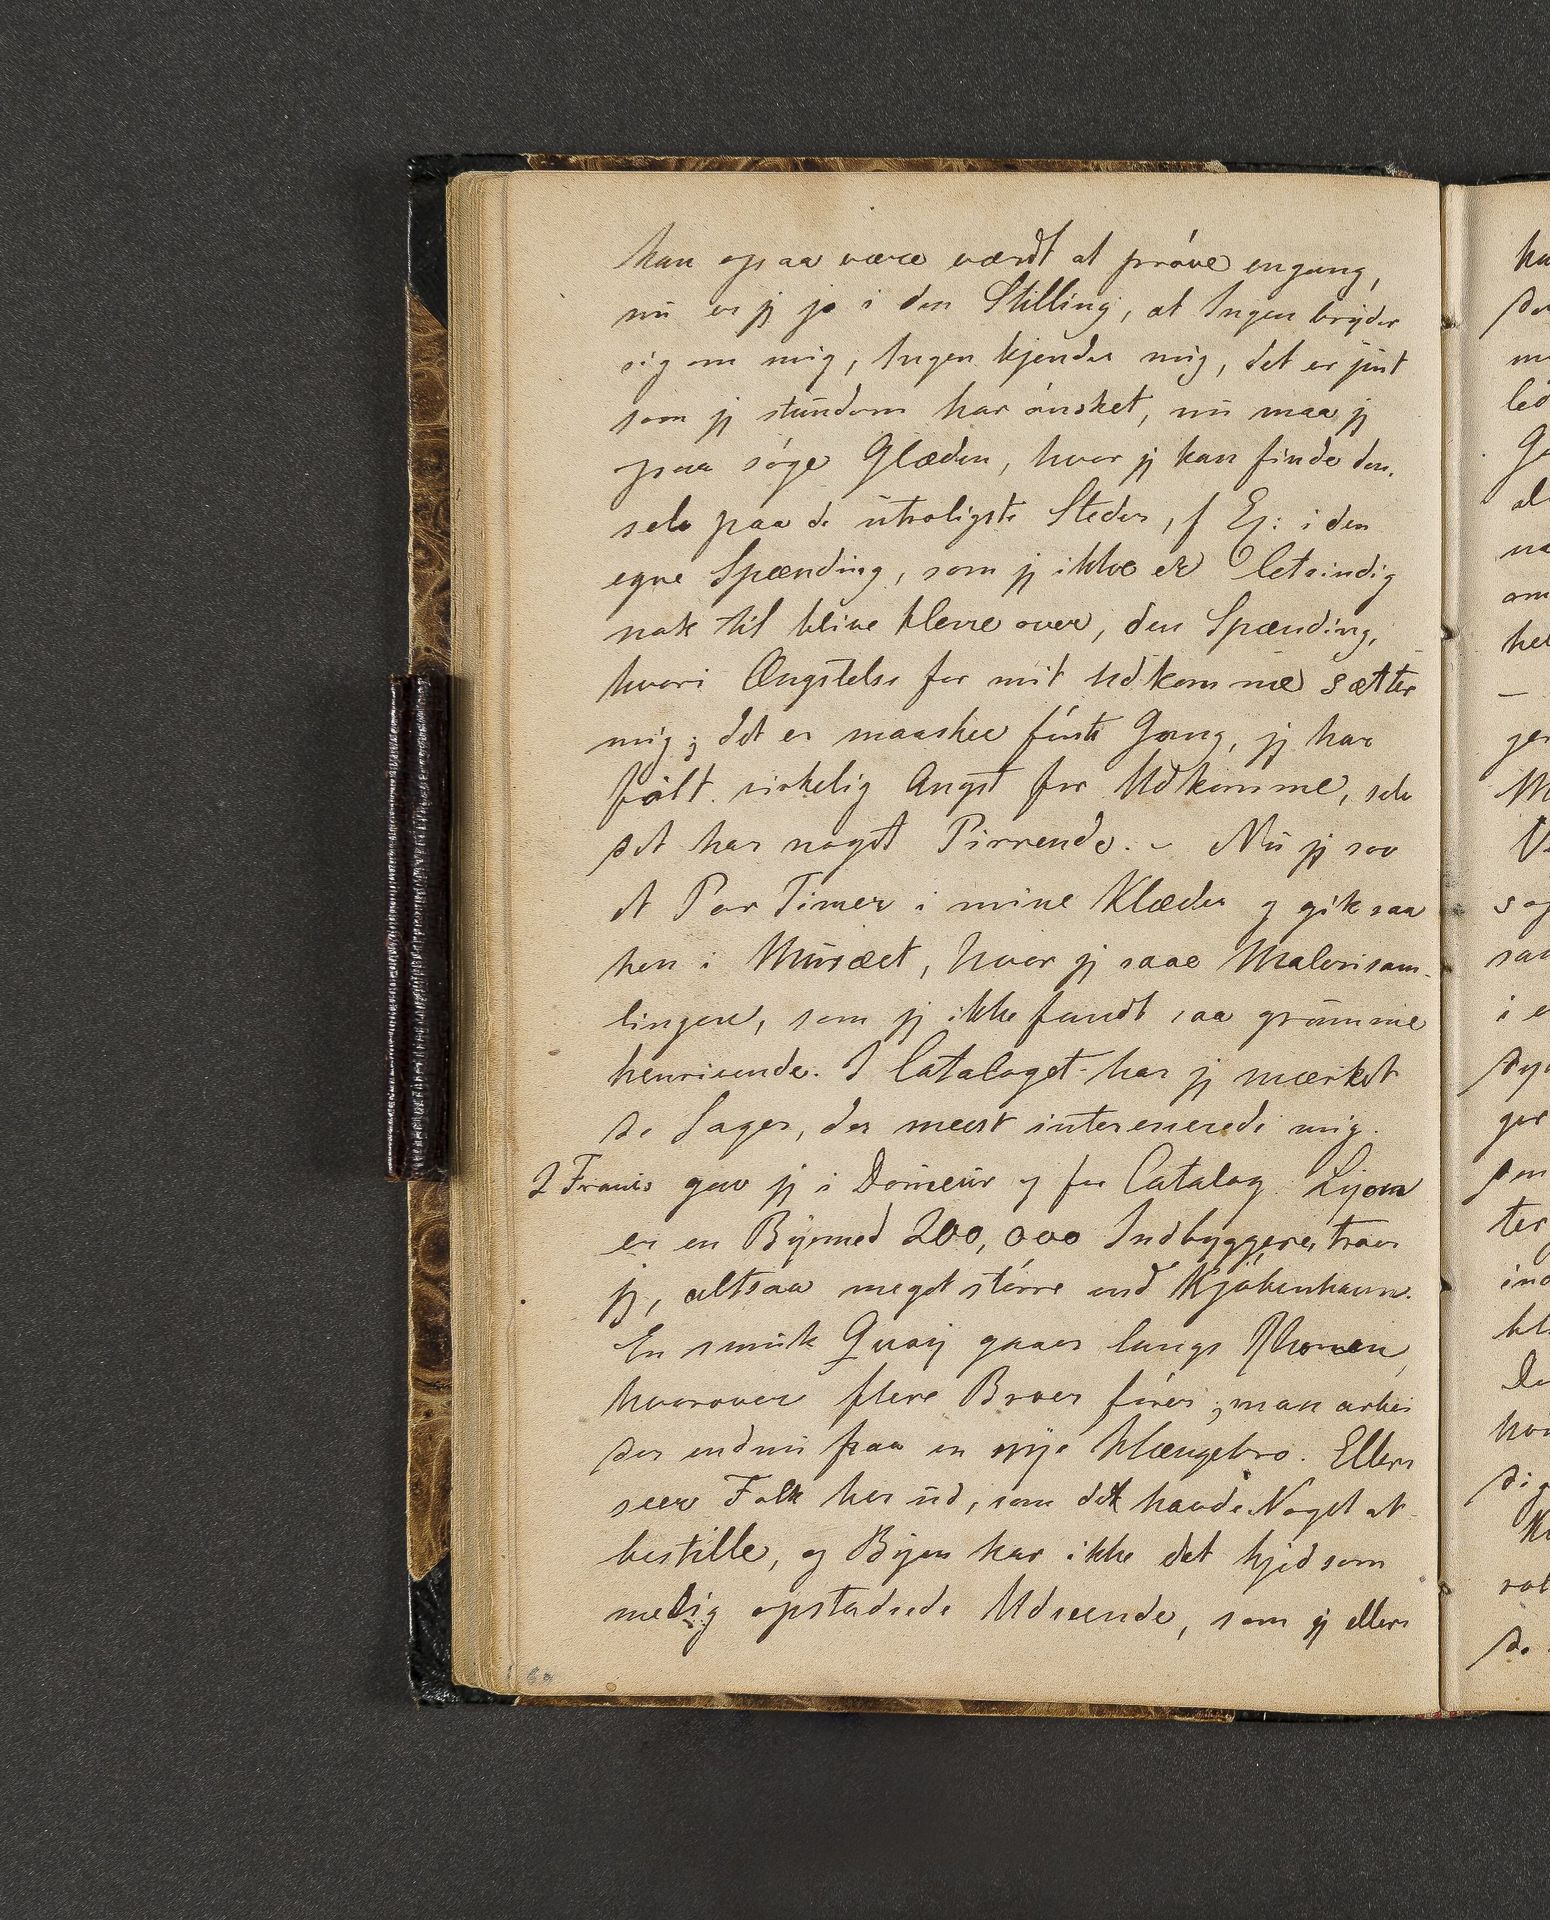 kan ogsaa være værdt at prøve engang,
nu er jeg jo i den Stilling, at Ingen bryder
sig om mig, Ingen kjender mig, det er just
som jeg stundom har ønsket, nu maa jeg
ogsaa søge Glæden, hvor jeg kan finde den.
selv paa de utroligste Steder, f Ex: i den
egne Spænding, som jeg ikke er letsindig
nok til blive kleve over, den Spænding,
hvori Ængstelse for mit Udkomme sætter
mig; det er maaskee første Gang, jeg har
følt virkelig Angst for Udkomme, selv
det har noget Pirrende. – Nu jeg sov
et Par Timer i mine Klæder og gik saa
hen i Musæet, hvor jeg saae Malerisam-
lingen, som jeg ikke fandt saa grumme
henrivende. I Cataloget har jeg mærket
de Sager, der meest interesserede mig.
2 Francs gav jeg i Douceur og for Catalog. Lyon
er en By med 200,000 Indbyggere, troer
jeg, altsaa meget større end Kjøbenhavn.
En smuk Quai gaaer langs Rhonen,
hvorover flere Broer fører; man arbei
der endnu paa en nye Hængebro. Ellers
seer Folk her ud, som det havde Noget at
bestille, og Byen har ikke det kjedsom
melig opstadsede Udseende, som jeg ellers
60
ha